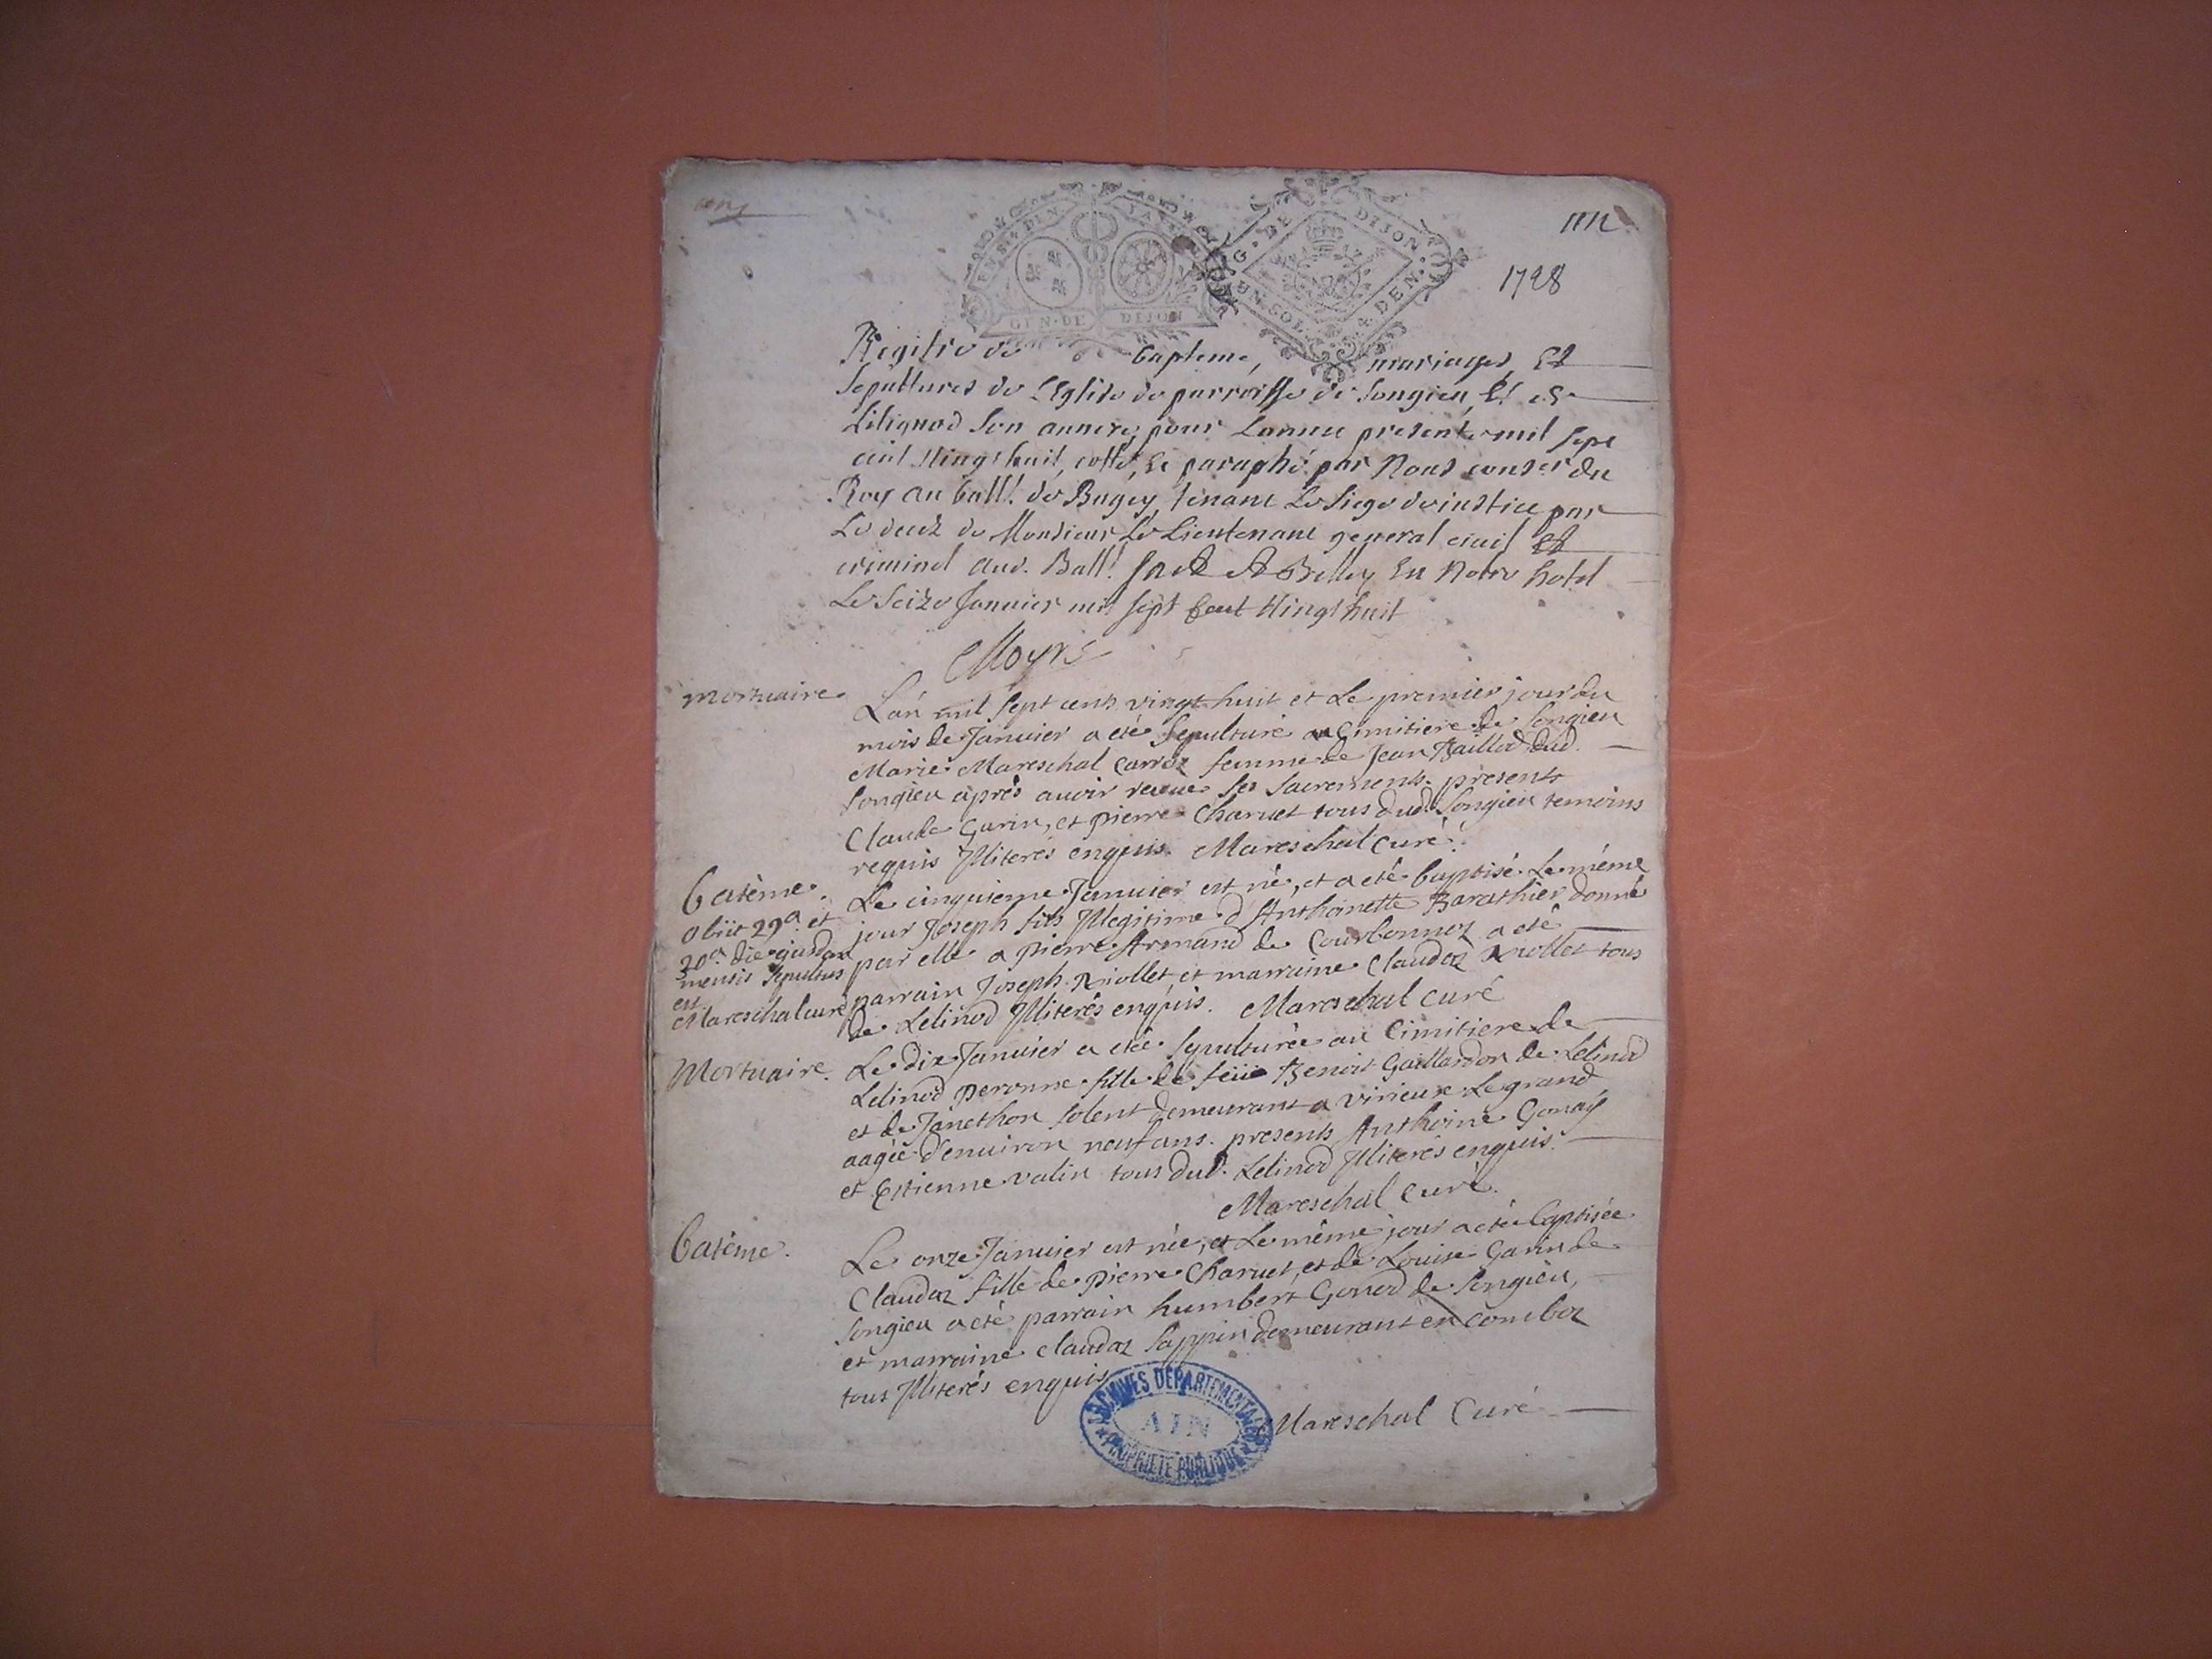 GEN. DE DIJON
G. DE DIJON
UN SOL 4 DEN.
1728
Registre de bapteme, mariages, Et
Sepultures de L'Eglise de parroisse de Songieu, Et de
Lilignod son annexe, pour Lannee presente mil sept
cent Vingt huit, cotté, Et paraphé par Nous conser du
Roy au Ball. de Bugey, tenant Le Siege de iustice par
Le decez de Monsieur Le Lieutenant general ciuil Et
criminel aud. Ball. A Belley En Notre hotel
Le Seize Januier mil sept Cent Vingt huit
Moyre
Mortuaire.
L'an mil sept cents vingt huit et Le premier jour du
mois de Januier a eté Sepulturé au Cimitiere de Songieu
Marie Mareschal Carroz femme de Jean Baillod dud.
Songieu aprés auoir receue ses sacrements. presents
Claude Garin, et pierre Charuet tous dud. Songieu temoins
requis Jlliterés enquis. Mareschal Curé.
Batême.
Obiit 29a. et
30a. die ejusdem
mensis sepultus
est
Mareschal curé
Le cinquieme Januier est né, et a eté baptisé Le méme
jour Joseph fils Jllegitime d'Anthoinette Barathier donné
par elle a pierre Armand de Courbonnoz a eté
parrain Joseph Niollet et marraine Claudaz Niollet tous
de Lelinod Jlliterés enquis. Mareschal Curé
Mortuaire.
Le dix Januier a eté Sepulturée au Cimitiere de
Lelinod peronne fille de feüe Benoit Gaillardon de Lelinod
et de Janethon Solent demeurant a virieux Le grand
aagée d'enuiron neuf ans. presents Anthoine Gonay
et Estienne valin tous dud. Lelinod Jlliterés enquis.
Mareschal Curé.
Batême.
Le onze Januier est née, et Le même jour a eté baptisée
Claudaz fille de pierre Charuet, et de Louise Garin de
Songieu a eté parrain humbert Gonod de Songieu,
et marraine claudaz Sappin demeurant en Comboz
tous Jlliterés enquis
Mareschal Curé
ARCHIVES DÉPARTEMENTALES
AIN
PROPRIÉTÉ PUBLIQUE